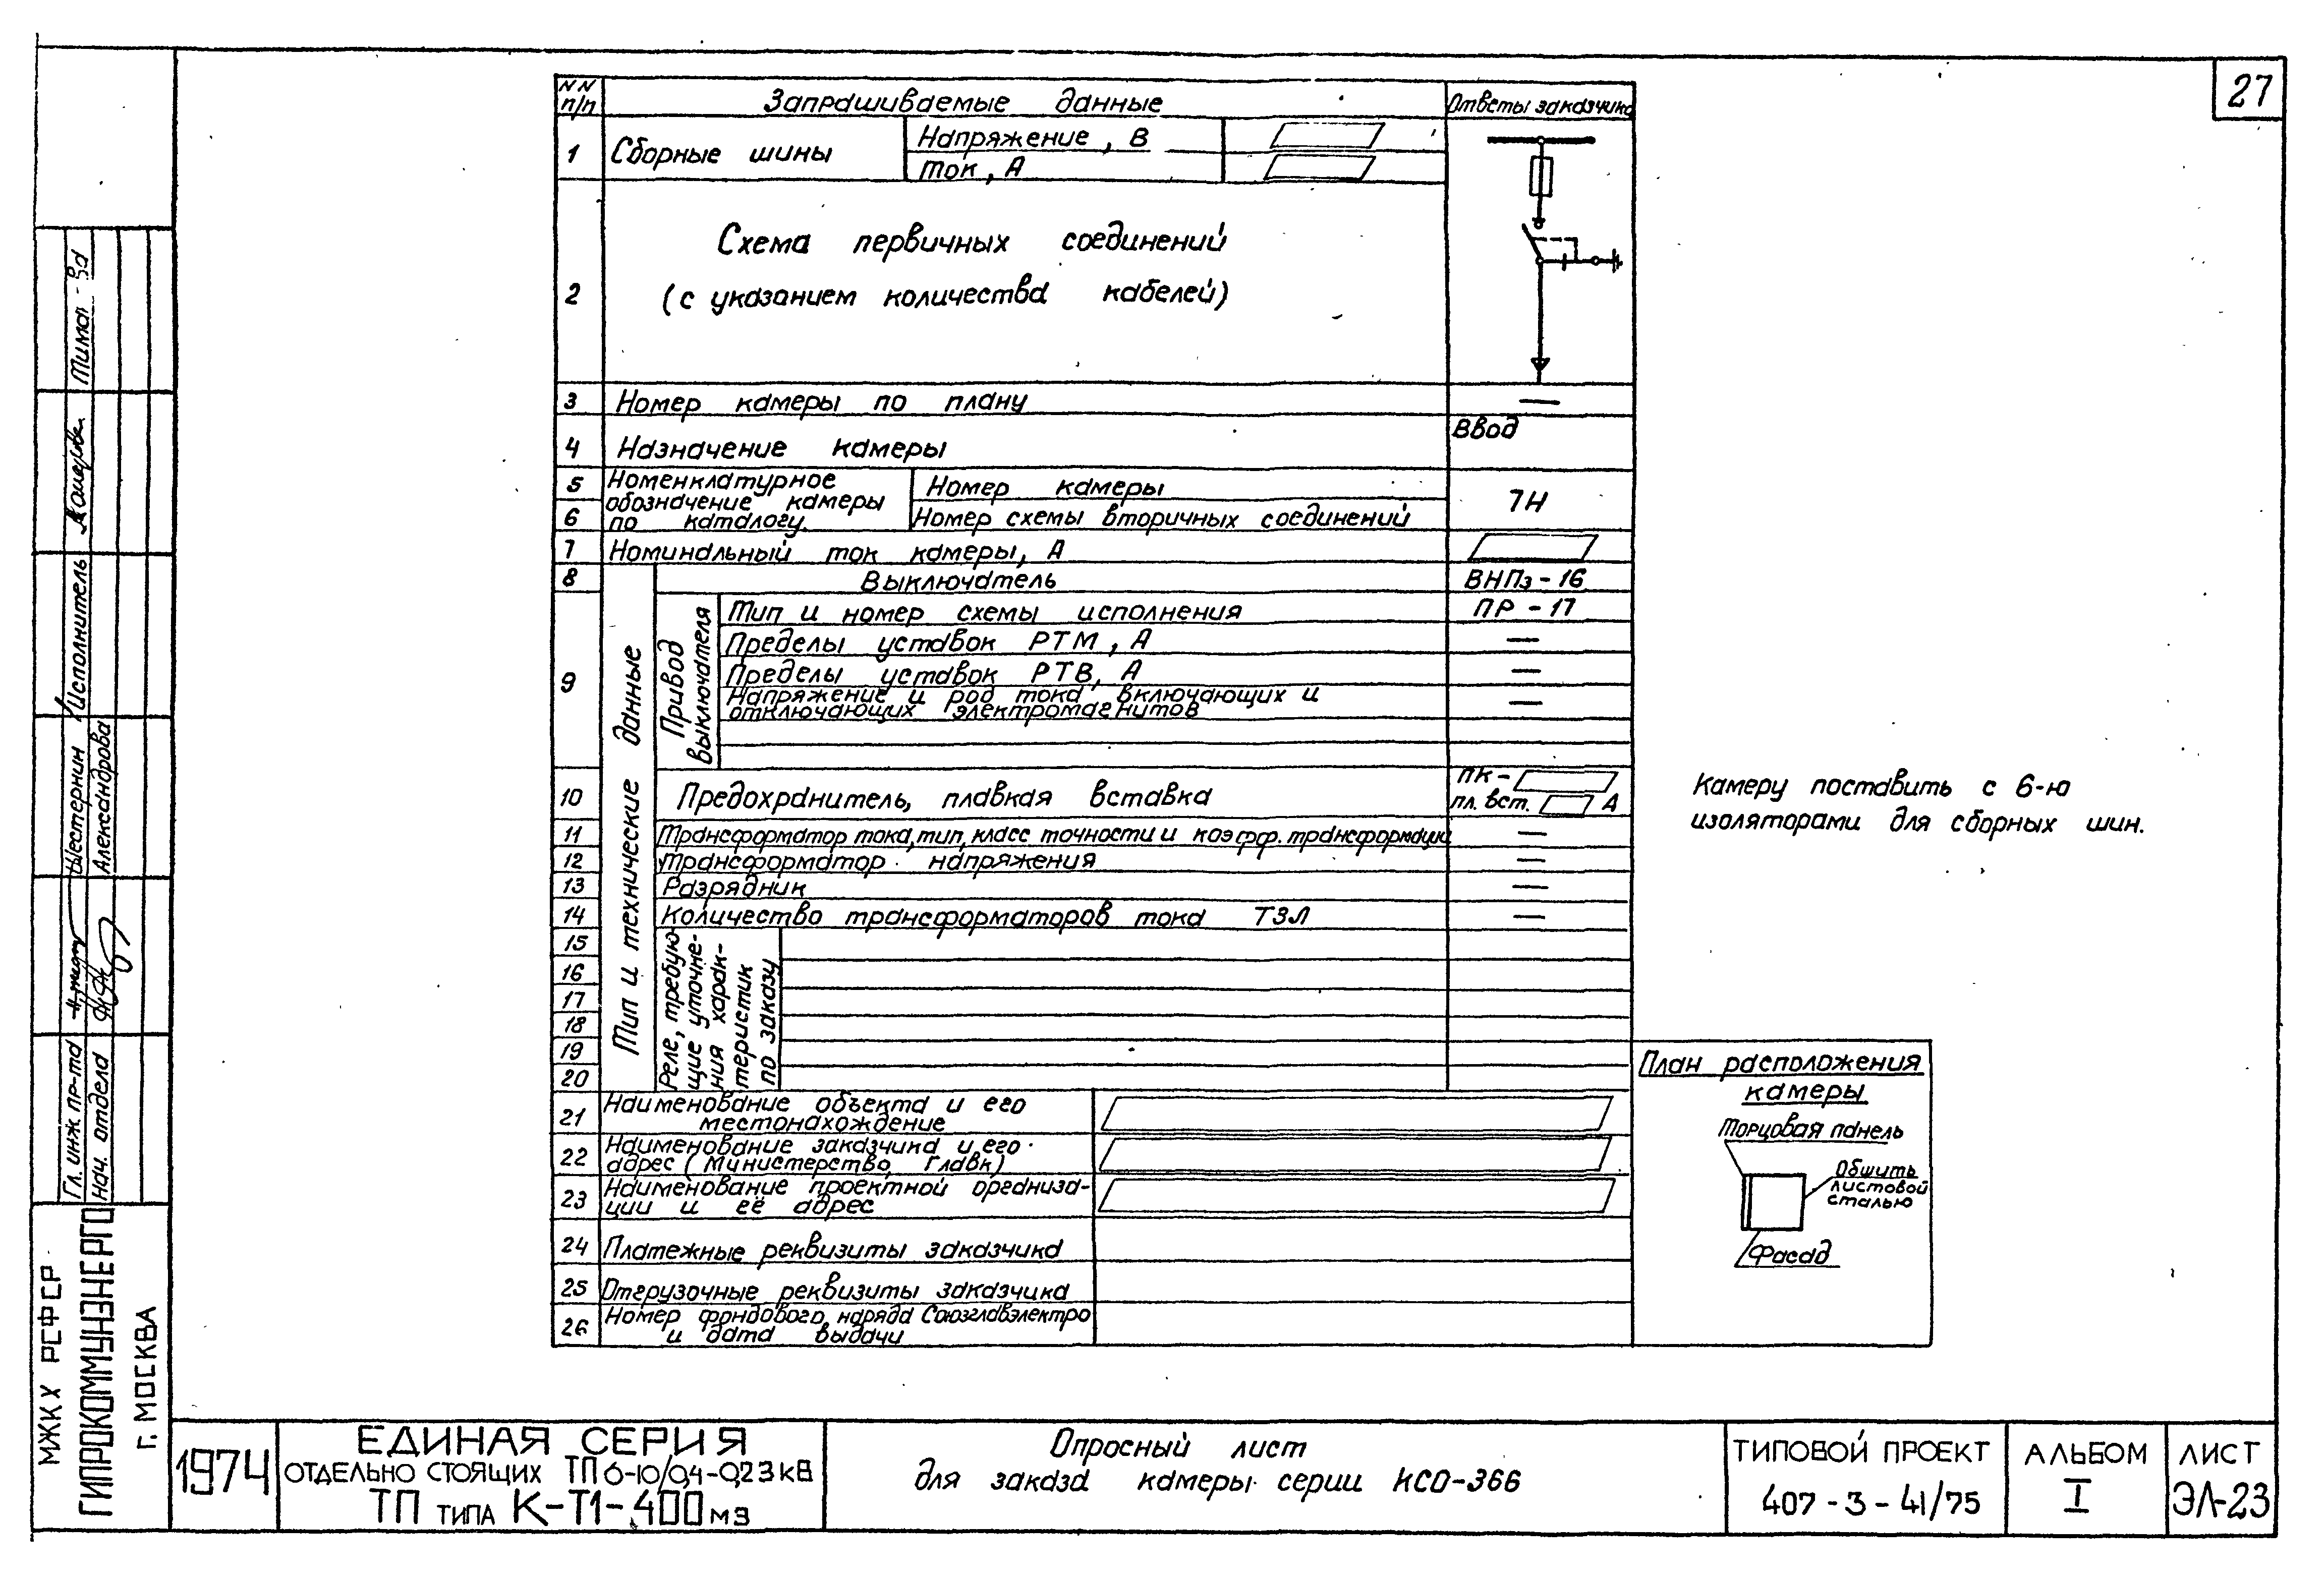 27
NN п/п Запрашиваемые данные Ответы заказчика
1 Сборные шины Напряжение, В
Ток, А
2 Схема первичных соединений
(с указанием количества кабелей)
3 Номер камеры по плану —
4 Назначение камеры Ввод
5 Номенклатурное обозначение камеры по каталогу Номер камеры 7Н
6 Номер схемы вторичных соединений
7 Номинальный ток камеры, А
Тип и технические данные
8 Выключатель ВНПз-16
9 Привод выключателя
Тип и номер схемы исполнения ПР-17
Пределы уставок РТМ, А —
Пределы уставок РТВ, А —
Напряжение и род тока включающих и
отключающих электромагнитов —
10 Предохранитель, плавкая вставка ПК-
пл. вст. А
11 Трансформатор тока, тип, класс точности и коэфф. трансформации —
12 Трансформатор напряжения —
13 Разрядник —
14 Количество трансформаторов тока ТЗЛ —
15
16
17
18
19
20
Реле, требую-
щие уточне-
ния харак-
теристик
по заказу
21 Наименование объекта и его
местонахождение
22 Наименование заказчика и его
адрес (Министерство, Главк)
23 Наименование проектной организа-
ции и её адрес
24 Платежные реквизиты заказчика
25 Отгрузочные реквизиты заказчика
26 Номер фондового наряда Союзглавэлектро
и дата выдачи
Камеру поставить с 6-ю
изоляторами для сборных шин.
План расположения
камеры
Торцовая панель
Обшить
листовой
сталью
Фасад
Исполнитель
Шестернин
Александрова
Гл. инж. пр-та
Нач. отдела
МЖКХ РСФСР
ГИПРОКОММУНЭНЕРГО
г. МОСКВА
1974
ЕДИНАЯ СЕРИЯ
ОТДЕЛЬНО СТОЯЩИХ ТП 6-10/0,4-0,23кВ
ТП ТИПА К-Т1-400м3
Опросный лист
для заказа камеры серии КСО-366
ТИПОВОЙ ПРОЕКТ
407-3-41/75
АЛЬБОМ
I
ЛИСТ
ЭЛ-23